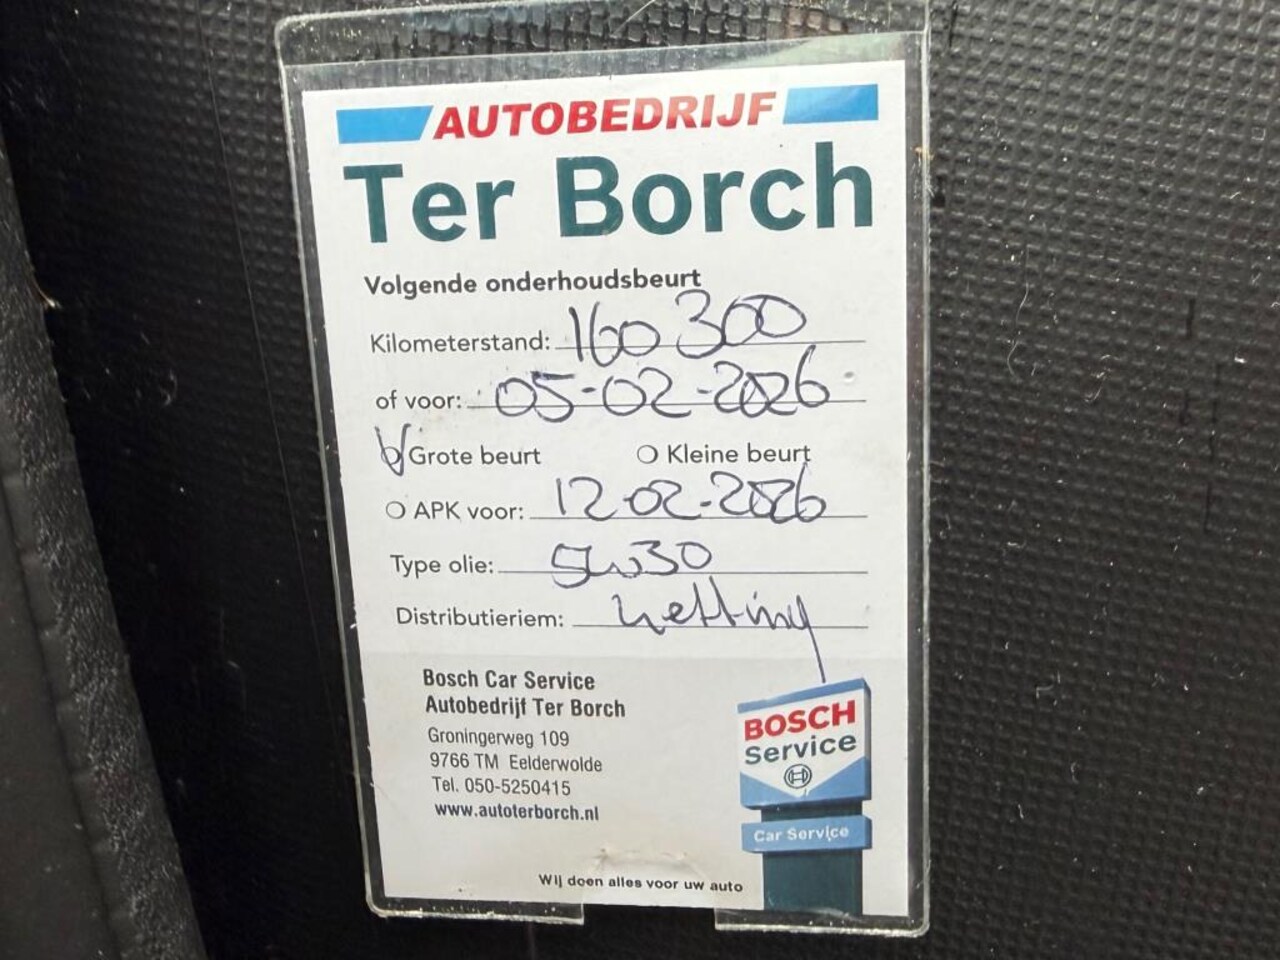 AUTOBEDRIJF
Ter Borch
Volgende onderhoudsbeurt
Kilometerstand: 160 300
of voor: 05-02-2026
Grote beurt Kleine beurt
APK voor: 12-02-2026
Type olie: 5w30
Distributieriem: ketting
Bosch Car Service
Autobedrijf Ter Borch
Groningerweg 109
9766 TM Eelderwolde
Tel. 050-5250415
www.autoterborch.nl
BOSCH
Service
Car Service
Wij doen alles voor uw auto